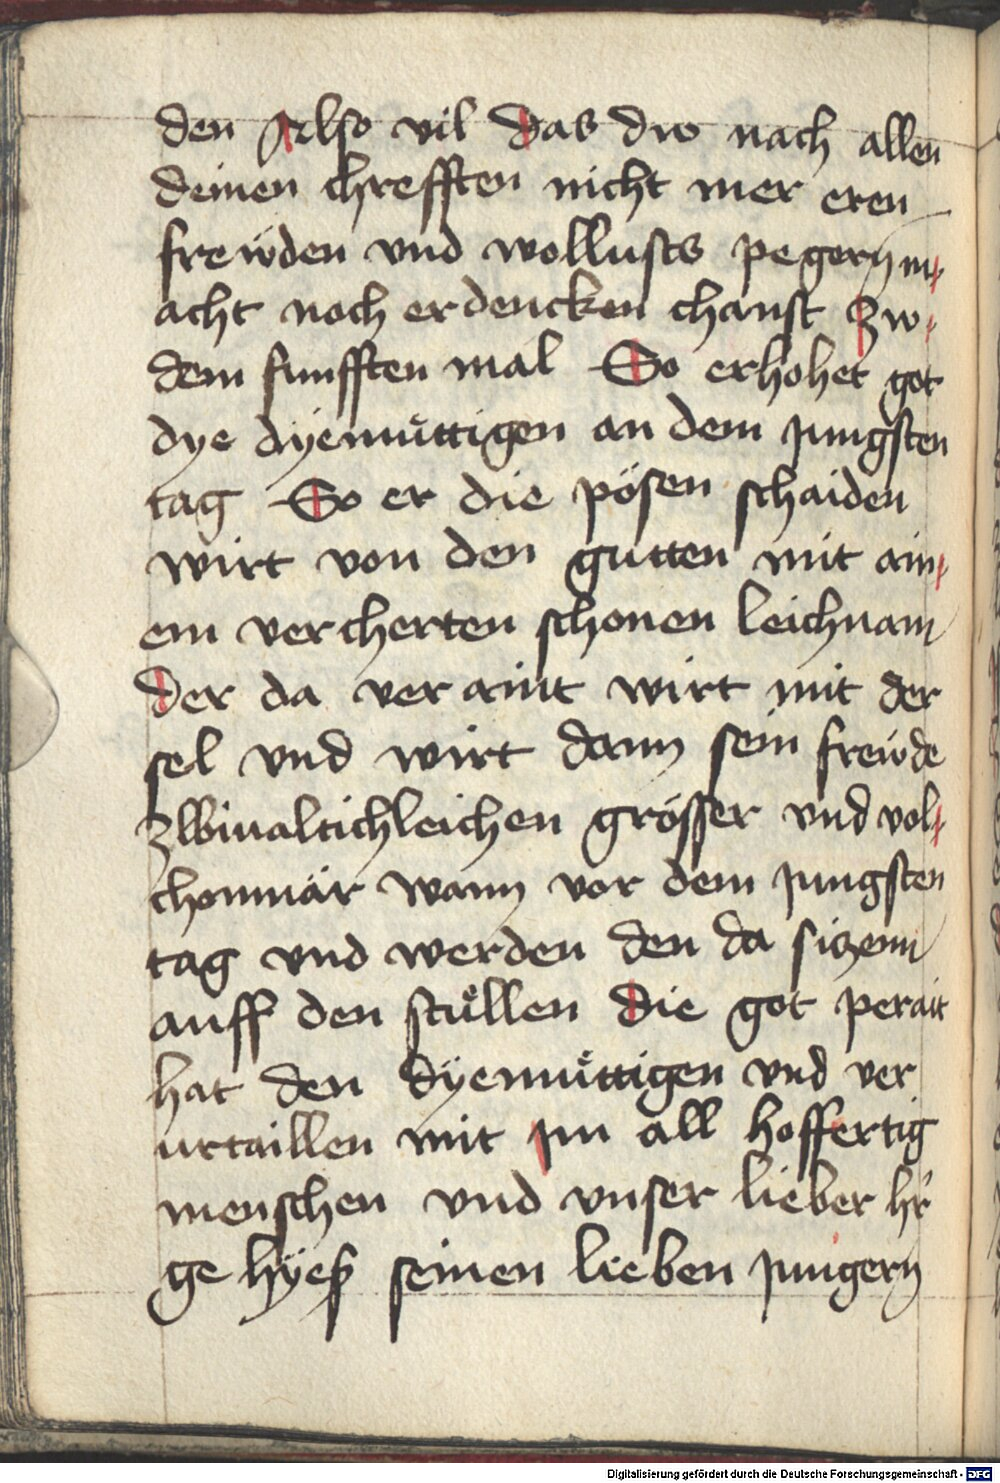 den Also vil das dw nach allen
deinen chrefften nicht mer eren
frewden vnd wollusts pegern m
acht noch erdencken chanst Zw
dem funfften mal So erhohet got
dye dyemüttigen an dem jungsten
tag So er die pösen schaiden
wirt von den gutten mit ain
em vercherten schonen leichnam
der da veraint wirt mit der
sel vnd wirt dann sein frewde
zwiualtichleichen grösser vnd vol
chommär wann vor dem jungsten
tag vnd werden den da sitzenn
auff den stüllen die got perait
hat den dyemüttigen vnd ver
urtaillen mit jm all hoffertig
menschen vnd vnser lieber hr
ge hyeß seinen lieben jungern
Digitalisierung gefördert durch die Deutsche Forschungsgemeinschaft - DFG